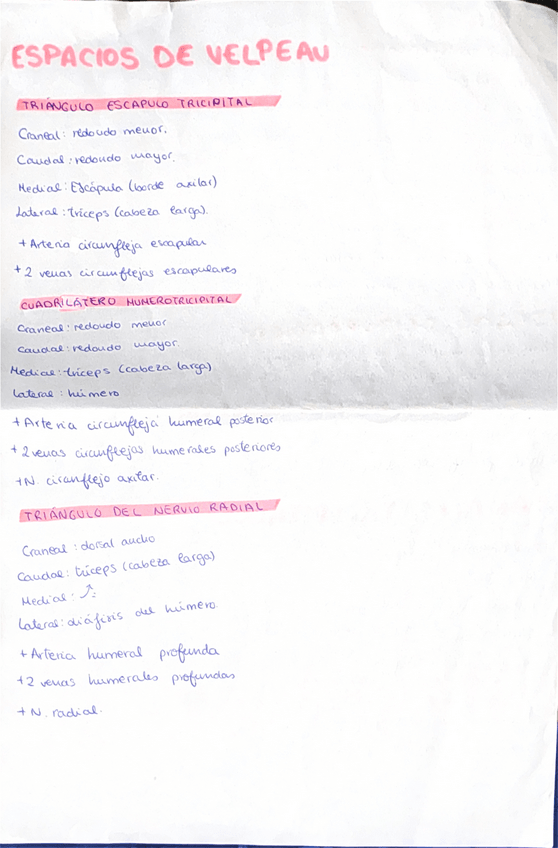 ESPACIOS DE VELPEAU
TRIÁNGULO ESCAPULO TRICIPITAL
Craneal: redondo menor.
Caudal: redondo mayor.
Medial: Escápula (borde axilar)
Lateral: tríceps (cabeza larga).
+ Arteria circunfleja escapular
+ 2 venas circunflejas escapulares
CUADRILÁTERO HUMEROTRICIPITAL
Craneal: redondo menor
Caudal: redondo mayor.
Medial: tríceps (cabeza larga)
Lateral: húmero
+ Arteria circunfleja humeral posterior
+ 2 venas circunflejas humerales posteriores
+ N. circunflejo axilar.
TRIÁNGULO DEL NERVIO RADIAL
Craneal: dorsal ancho
Caudal: tríceps (cabeza larga)
Medial: ↗:
Lateral: diáfisis del húmero.
+ Arteria humeral profunda
+ 2 venas humerales profundas
+ N. radial.